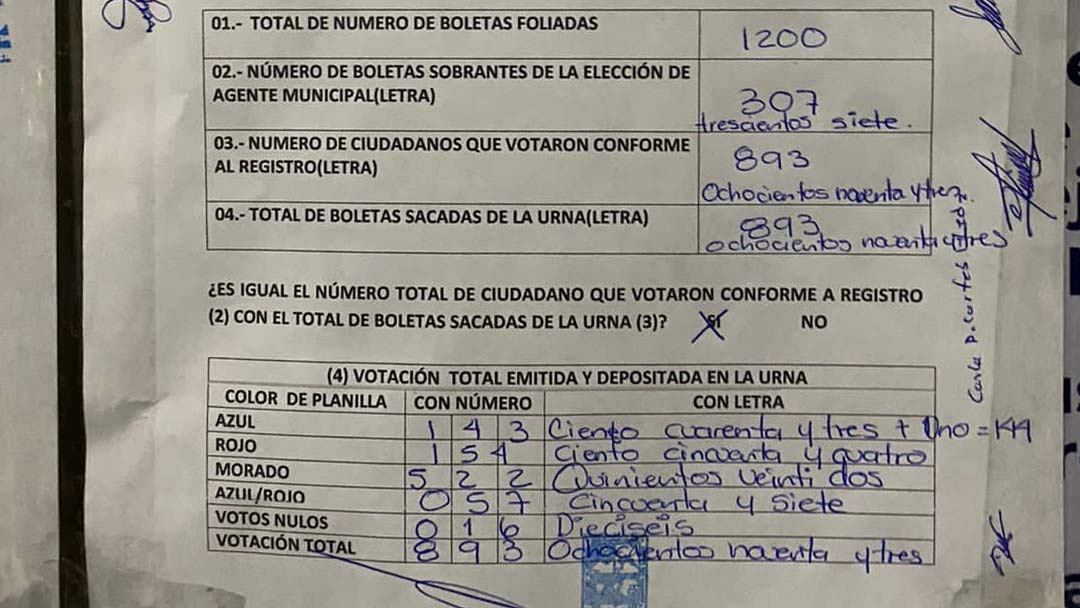 01.- TOTAL DE NUMERO DE BOLETAS FOLIADAS
1200
02.- NÚMERO DE BOLETAS SOBRANTES DE LA ELECCIÓN DE
AGENTE MUNICIPAL(LETRA)
307
trescientos siete.
03.- NUMERO DE CIUDADANOS QUE VOTARON CONFORME
AL REGISTRO(LETRA)
893
Ochocientos noventa y trez
04.- TOTAL DE BOLETAS SACADAS DE LA URNA(LETRA)
893
ochocientos noventa y tres
¿ES IGUAL EL NÚMERO TOTAL DE CIUDADANO QUE VOTARON CONFORME A REGISTRO
(2) CON EL TOTAL DE BOLETAS SACADAS DE LA URNA (3)? SI NO
(4) VOTACIÓN TOTAL EMITIDA Y DEPOSITADA EN LA URNA
COLOR DE PLANILLA CON NÚMERO CON LETRA
AZUL 1 4 3 Ciento cuarenta y tres + Uno = 144
ROJO 1 5 4 Ciento cincuenta y quatro
MORADO 5 2 2 Quinientos veinti dos
AZUL/ROJO 0 5 7 Cincuenta y siete
VOTOS NULOS 0 1 6 Dieciseis
VOTACIÓN TOTAL 8 9 3 Ochocientos noventa y tres
Carla P. Cortes